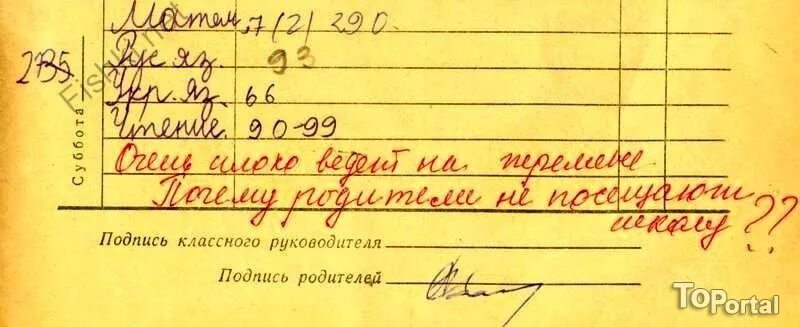 Матем. 7(2) 290.
Рус яз. 93
Укр. яз. 66
Чтение. 90-99
Суббота
Очень плохо ведет на перемене
Почему родители не посещают
школу??
Подпись классного руководителя
Подпись родителей
TOPortal